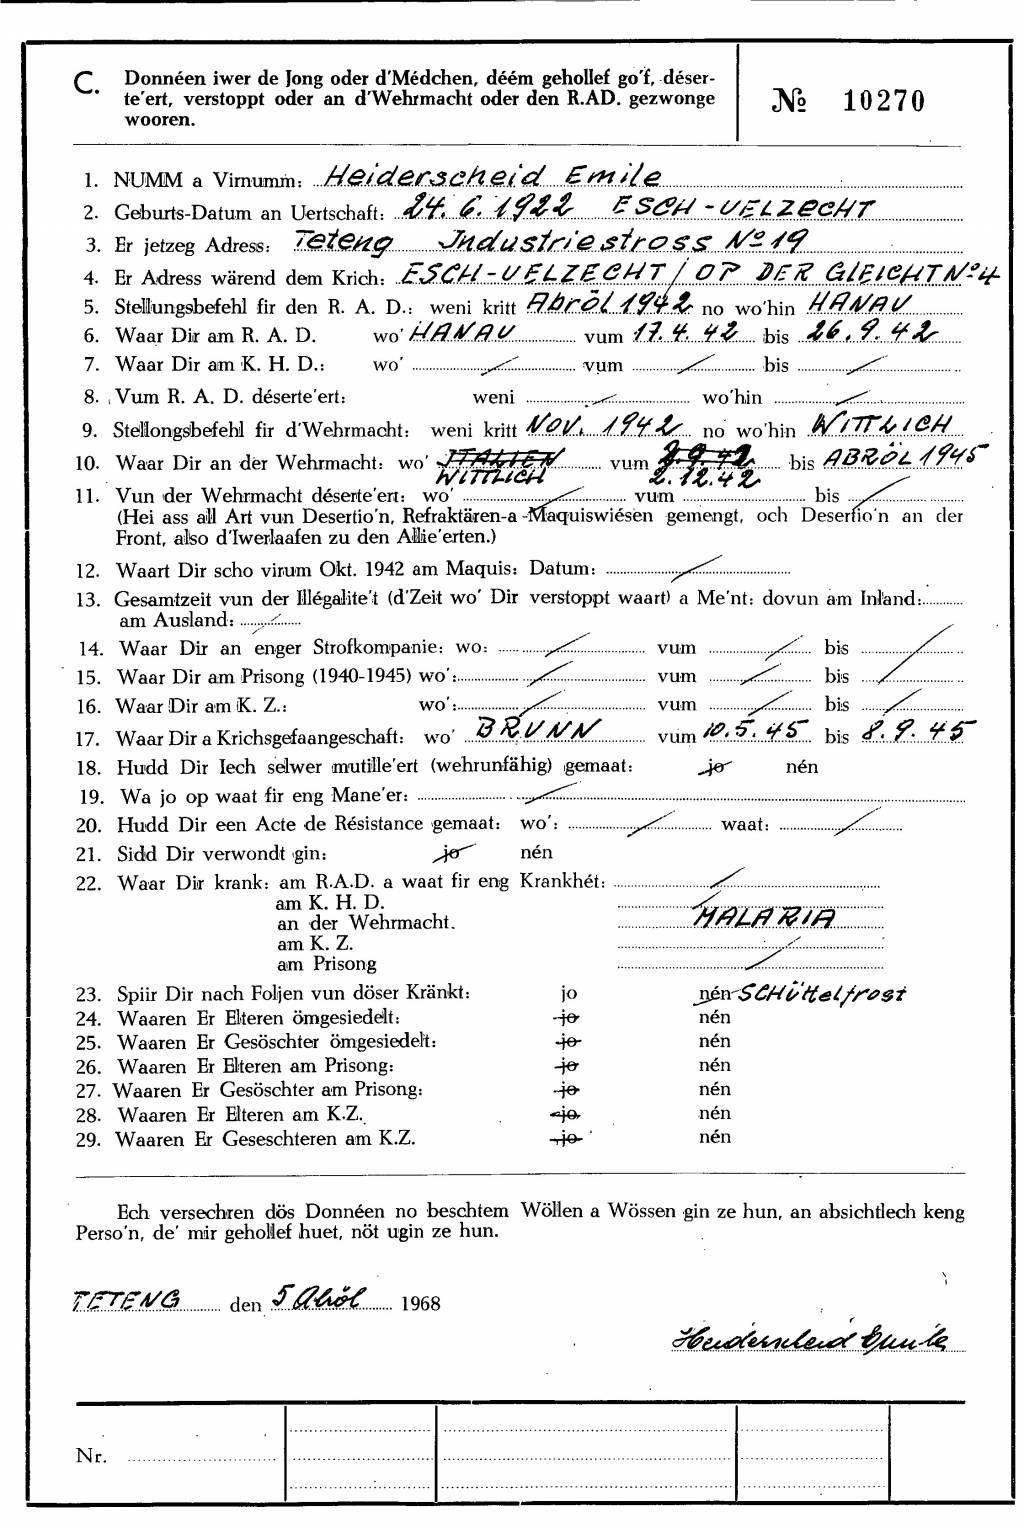 C. Donnéen iwer de Jong oder d'Médchen, déém gehollef go'f, déser-
te'ert, verstoppt oder an d'Wehrmacht oder den R.AD. gezwonge
wooren.
№ 10270
1. NUMM a Virnumm: Heiderscheid Emile
2. Geburts-Datum an Uertschaft: 24. 6. 1922 ESCH-UELZECHT
3. Er jetzeg Adress: Teteng Industriestross No 19
4. Er Adress wärend dem Krich: ESCH-UELZECHT / OP DER GLEICHT No 4
5. Stellungsbefehl fir den R. A. D.: weni kritt Abröl 1942 no wo'hin HANAU
6. Waar Dir am R. A. D. wo' HANAU vum 17. 4. 42 bis 26. 9. 42
7. Waar Dir am K. H. D.: wo' vum bis
8. Vum R. A. D. déserte'ert: weni wo'hin
9. Stellongsbefehl fir d'Wehrmacht: weni kritt NOV. 1942 no wo'hin WITTLICH
10. Waar Dir an der Wehrmacht: wo' ITALIEN vum 2.9.42 bis ABRÖL 1945
WITTLICH 2.12.42
11. Vun der Wehrmacht déserte'ert: wo' vum bis
(Hei ass all Art vun Desertio'n, Refraktären-a -Maquiswiésen gemengt, och Desertio'n an der
Front, also d'Iwerlaafen zu den Allie'erten.)
12. Waart Dir scho virum Okt. 1942 am Maquis: Datum:
13. Gesamtzeit vun der Illégalite't (d'Zeit wo' Dir verstoppt waart) a Me'nt: dovun am Inland:
am Ausland:
14. Waar Dir an enger Strofkompanie: wo: vum bis
15. Waar Dir am Prisong (1940-1945) wo': vum bis
16. Waar Dir am K. Z.: wo': vum bis
17. Waar Dir a Krichsgefaangeschaft: wo' BRUNN vum 10.5.45 bis 8.9.45
18. Hudd Dir Iech selwer mutille'ert (wehrunfähig) gemaat: jo nén
19. Wa jo op waat fir eng Mane'er:
20. Hudd Dir een Acte de Résistance gemaat: wo': waat:
21. Sidd Dir verwondt gin: jo nén
22. Waar Dir krank: am R.A.D. a waat fir eng Krankhét:
am K. H. D.
an der Wehrmacht. MALARIA
am K. Z.
am Prisong
23. Spiir Dir nach Foljen vun döser Kränkt: jo nén SCHüttelfrost
24. Waaren Er Elteren ömgesiedelt: jo nén
25. Waaren Er Gesöschter ömgesiedelt: jo nén
26. Waaren Er Elteren am Prisong: jo nén
27. Waaren Er Gesöschter am Prisong: jo nén
28. Waaren Er Elteren am K.Z. jo nén
29. Waaren Er Geseschteren am K.Z. jo nén
Ech versechren dös Donnéen no beschtem Wöllen a Wössen gin ze hun, an absichtlech keng
Perso'n, de' mir gehollef huet, nöt ugin ze hun.
TETENG den 5 Abröl 1968
Heiderscheid Emile
Nr.